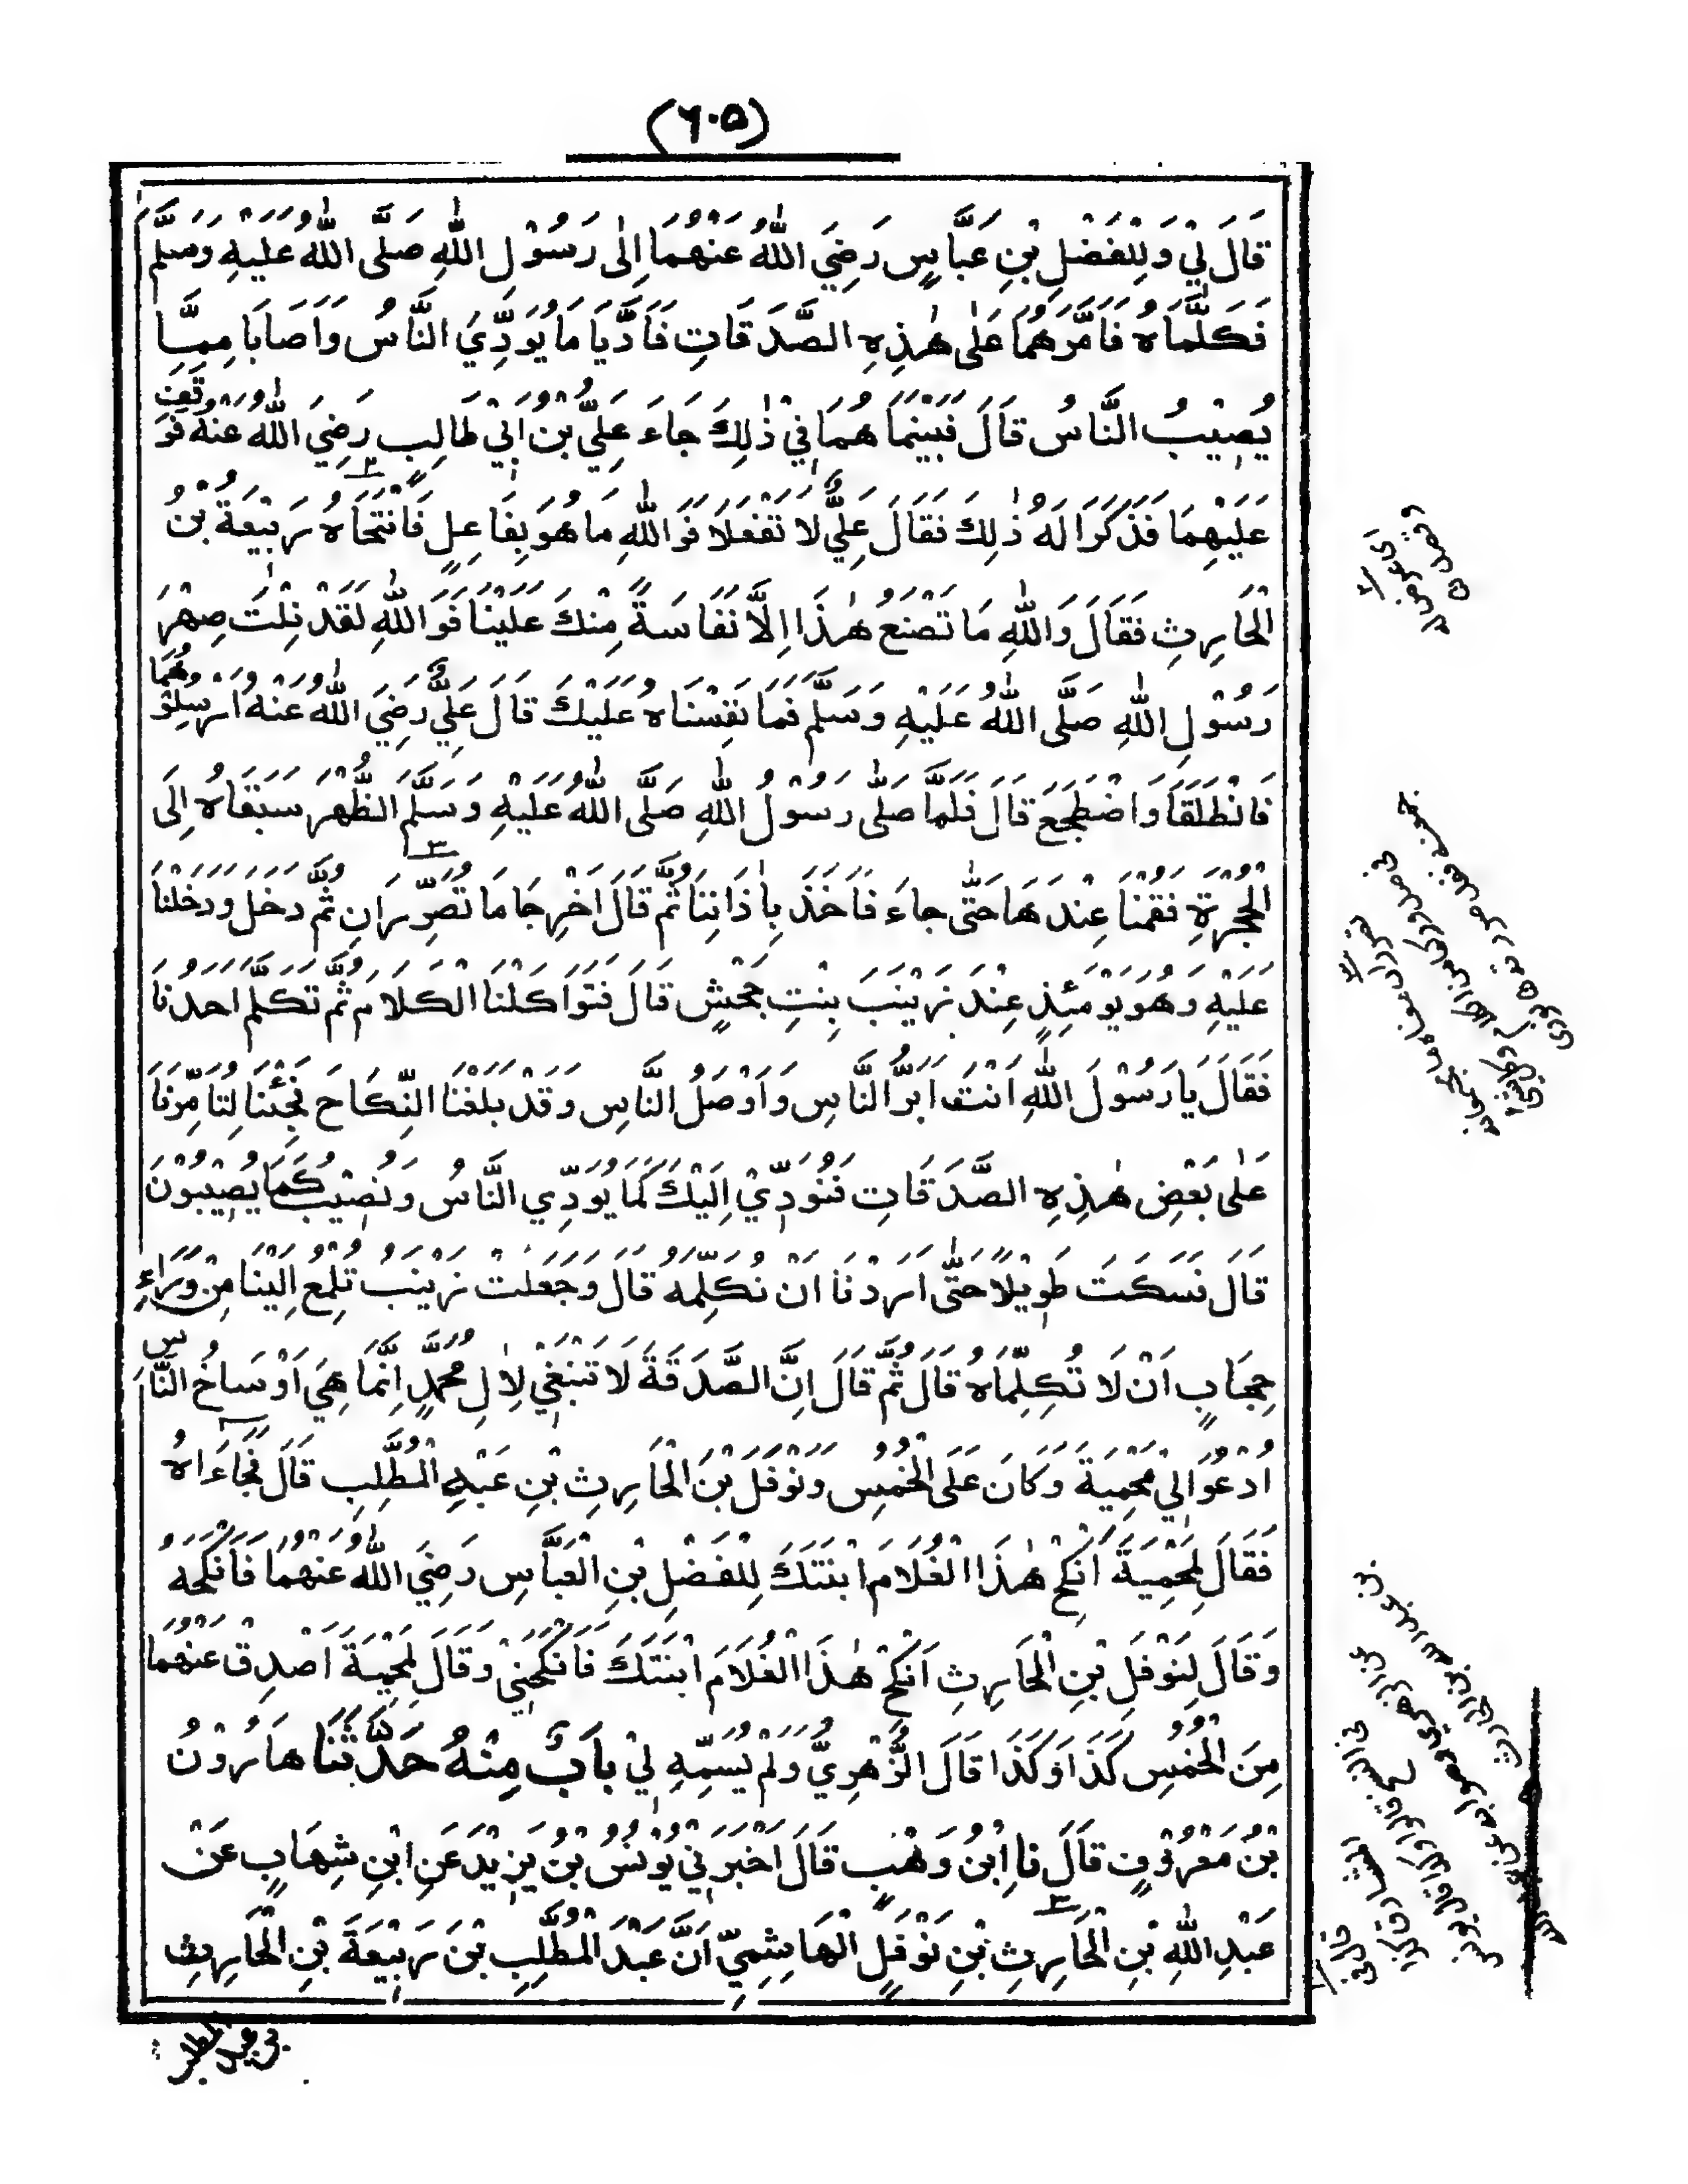 (٦٠٥)
قَالَ لِيْ وَلِلْفَضْلِ بْنِ عَبَّاسٍ رَضِيَ اللّٰهُ عَنْهُمَا اِلٰى رَسُوْلِ اللّٰهِ صَلَّى اللّٰهُ عَلَيْهِ وَسَلَّمَ
فَكَلَّمَاهُ فَاَمَّرَهُمَا عَلٰى هٰذِهِ الصَّدَقَاتِ فَاَدَّيَا مَا يُوَدِّيَ النَّاسُ وَاَصَابَا مِمَّا
يُصِيْبُ النَّاسُ قَالَ فَبَيْنَمَا هُمَا فِيْ ذٰلِكَ جَاءَ عَلِيُّ بْنُ اَبِيْ طَالِبٍ رَضِيَ اللّٰهُ عَنْهُ فَوَقَفَ
عَلَيْهِمَا فَذَكَرَا لَهُ ذٰلِكَ فَقَالَ عَلِيٌّ لَا تَفْعَلَا فَوَاللّٰهِ مَا هُوَ بِفَاعِلٍ فَانْتَحَاهُ رَبِيْعَةُ بْنُ
الْحَارِثِ فَقَالَ وَاللّٰهِ مَا تَصْنَعُ هٰذَا اِلَّا نَفَاسَةً مِنْكَ عَلَيْنَا فَوَاللّٰهِ لَقَدْ نِلْتَ صِهْرَ
رَسُوْلِ اللّٰهِ صَلَّى اللّٰهُ عَلَيْهِ وَسَلَّمَ فَمَا نَفِسْنَاهُ عَلَيْكَ قَالَ عَلِيٌّ رَضِيَ اللّٰهُ عَنْهُ اَرْسِلُوْهُمَا
فَانْطَلَقَا وَاضْطَجَعَ قَالَ فَلَمَّا صَلّٰى رَسُوْلُ اللّٰهِ صَلَّى اللّٰهُ عَلَيْهِ وَسَلَّمَ الظُّهْرَ سَبَقَاهُ اِلَى
الْحُجْرَةِ فَقُمْنَا عِنْدَهَا حَتّٰى جَاءَ فَاَخَذَ بِاٰذَانِنَا ثُمَّ قَالَ اَخْرِجَا مَا تُصَرِّرَانِ ثُمَّ دَخَلَ وَدَخَلْنَا
عَلَيْهِ وَهُوَ يَوْمَئِذٍ عِنْدَ زَيْنَبَ بِنْتِ جَحْشٍ قَالَ فَتَوَاكَلْنَا الْكَلَامَ ثُمَّ تَكَلَّمَ اَحَدُنَا
فَقَالَ يَا رَسُوْلَ اللّٰهِ اَنْتَ اَبَرُّ النَّاسِ وَاَوْصَلُ النَّاسِ وَقَدْ بَلَغْنَا النِّكَاحَ فَجِئْنَا لِتُاَمِّرَنَا
عَلٰى بَعْضِ هٰذِهِ الصَّدَقَاتِ فَنُوَدِّيْ اِلَيْكَ كَمَا يُوَدِّي النَّاسُ وَنُصِيْبُ كَمَا يُصِيْبُوْنَ
قَالَ فَسَكَتَ طَوِيْلًا حَتّٰى اَرَدْنَا اَنْ نُكَلِّمَهُ قَالَ وَجَعَلَتْ زَيْنَبُ تُلْمِعُ اِلَيْنَا مِنْ وَرَاءِ
حِجَابٍ اَنْ لَا تُكَلِّمَاهُ قَالَ ثُمَّ قَالَ اِنَّ الصَّدَقَةَ لَا تَنْبَغِيْ لِاٰلِ مُحَمَّدٍ اِنَّمَا هِيَ اَوْسَاخُ النَّاسِ
اُدْعُوَا لِيْ مَحْمِيَةَ وَكَانَ عَلَى الْخُمُسِ وَنَوْفَلَ بْنَ الْحَارِثِ بْنِ عَبْدِ الْمُطَّلِبِ قَالَ فَجَاءَاهُ
فَقَالَ لِمَحْمِيَةَ اَنْكِحْ هٰذَا الْغُلَامَ ابْنَتَكَ لِلْفَضْلِ بْنِ الْعَبَّاسِ رَضِيَ اللّٰهُ عَنْهُمَا فَاَنْكَحَهُ
وَقَالَ لِنَوْفَلِ بْنِ الْحَارِثِ اَنْكِحْ هٰذَا الْغُلَامَ ابْنَتَكَ فَاَنْكَحَنِيْ وَقَالَ لِمَحْمِيَةَ اَصْدِقْ عَنْهُمَا
مِنَ الْخُمُسِ كَذَا وَكَذَا قَالَ الزُّهْرِيُّ وَلَمْ يُسَمِّهِ لِيْ بَابٌ مِنْهُ حَدَّثَنَا هَارُوْنُ
بْنُ مَعْرُوْفٍ قَالَ نَا ابْنُ وَهْبٍ قَالَ اَخْبَرَنِيْ يُوْنُسُ بْنُ يَزِيْدَ عَنِ ابْنِ شِهَابٍ عَنْ
عَبْدِ اللّٰهِ بْنِ الْحَارِثِ بْنِ نَوْفَلٍ الْهَاشِمِيِّ اَنَّ عَبْدَ الْمُطَّلِبِ بْنَ رَبِيْعَةَ بْنِ الْحَارِثِ